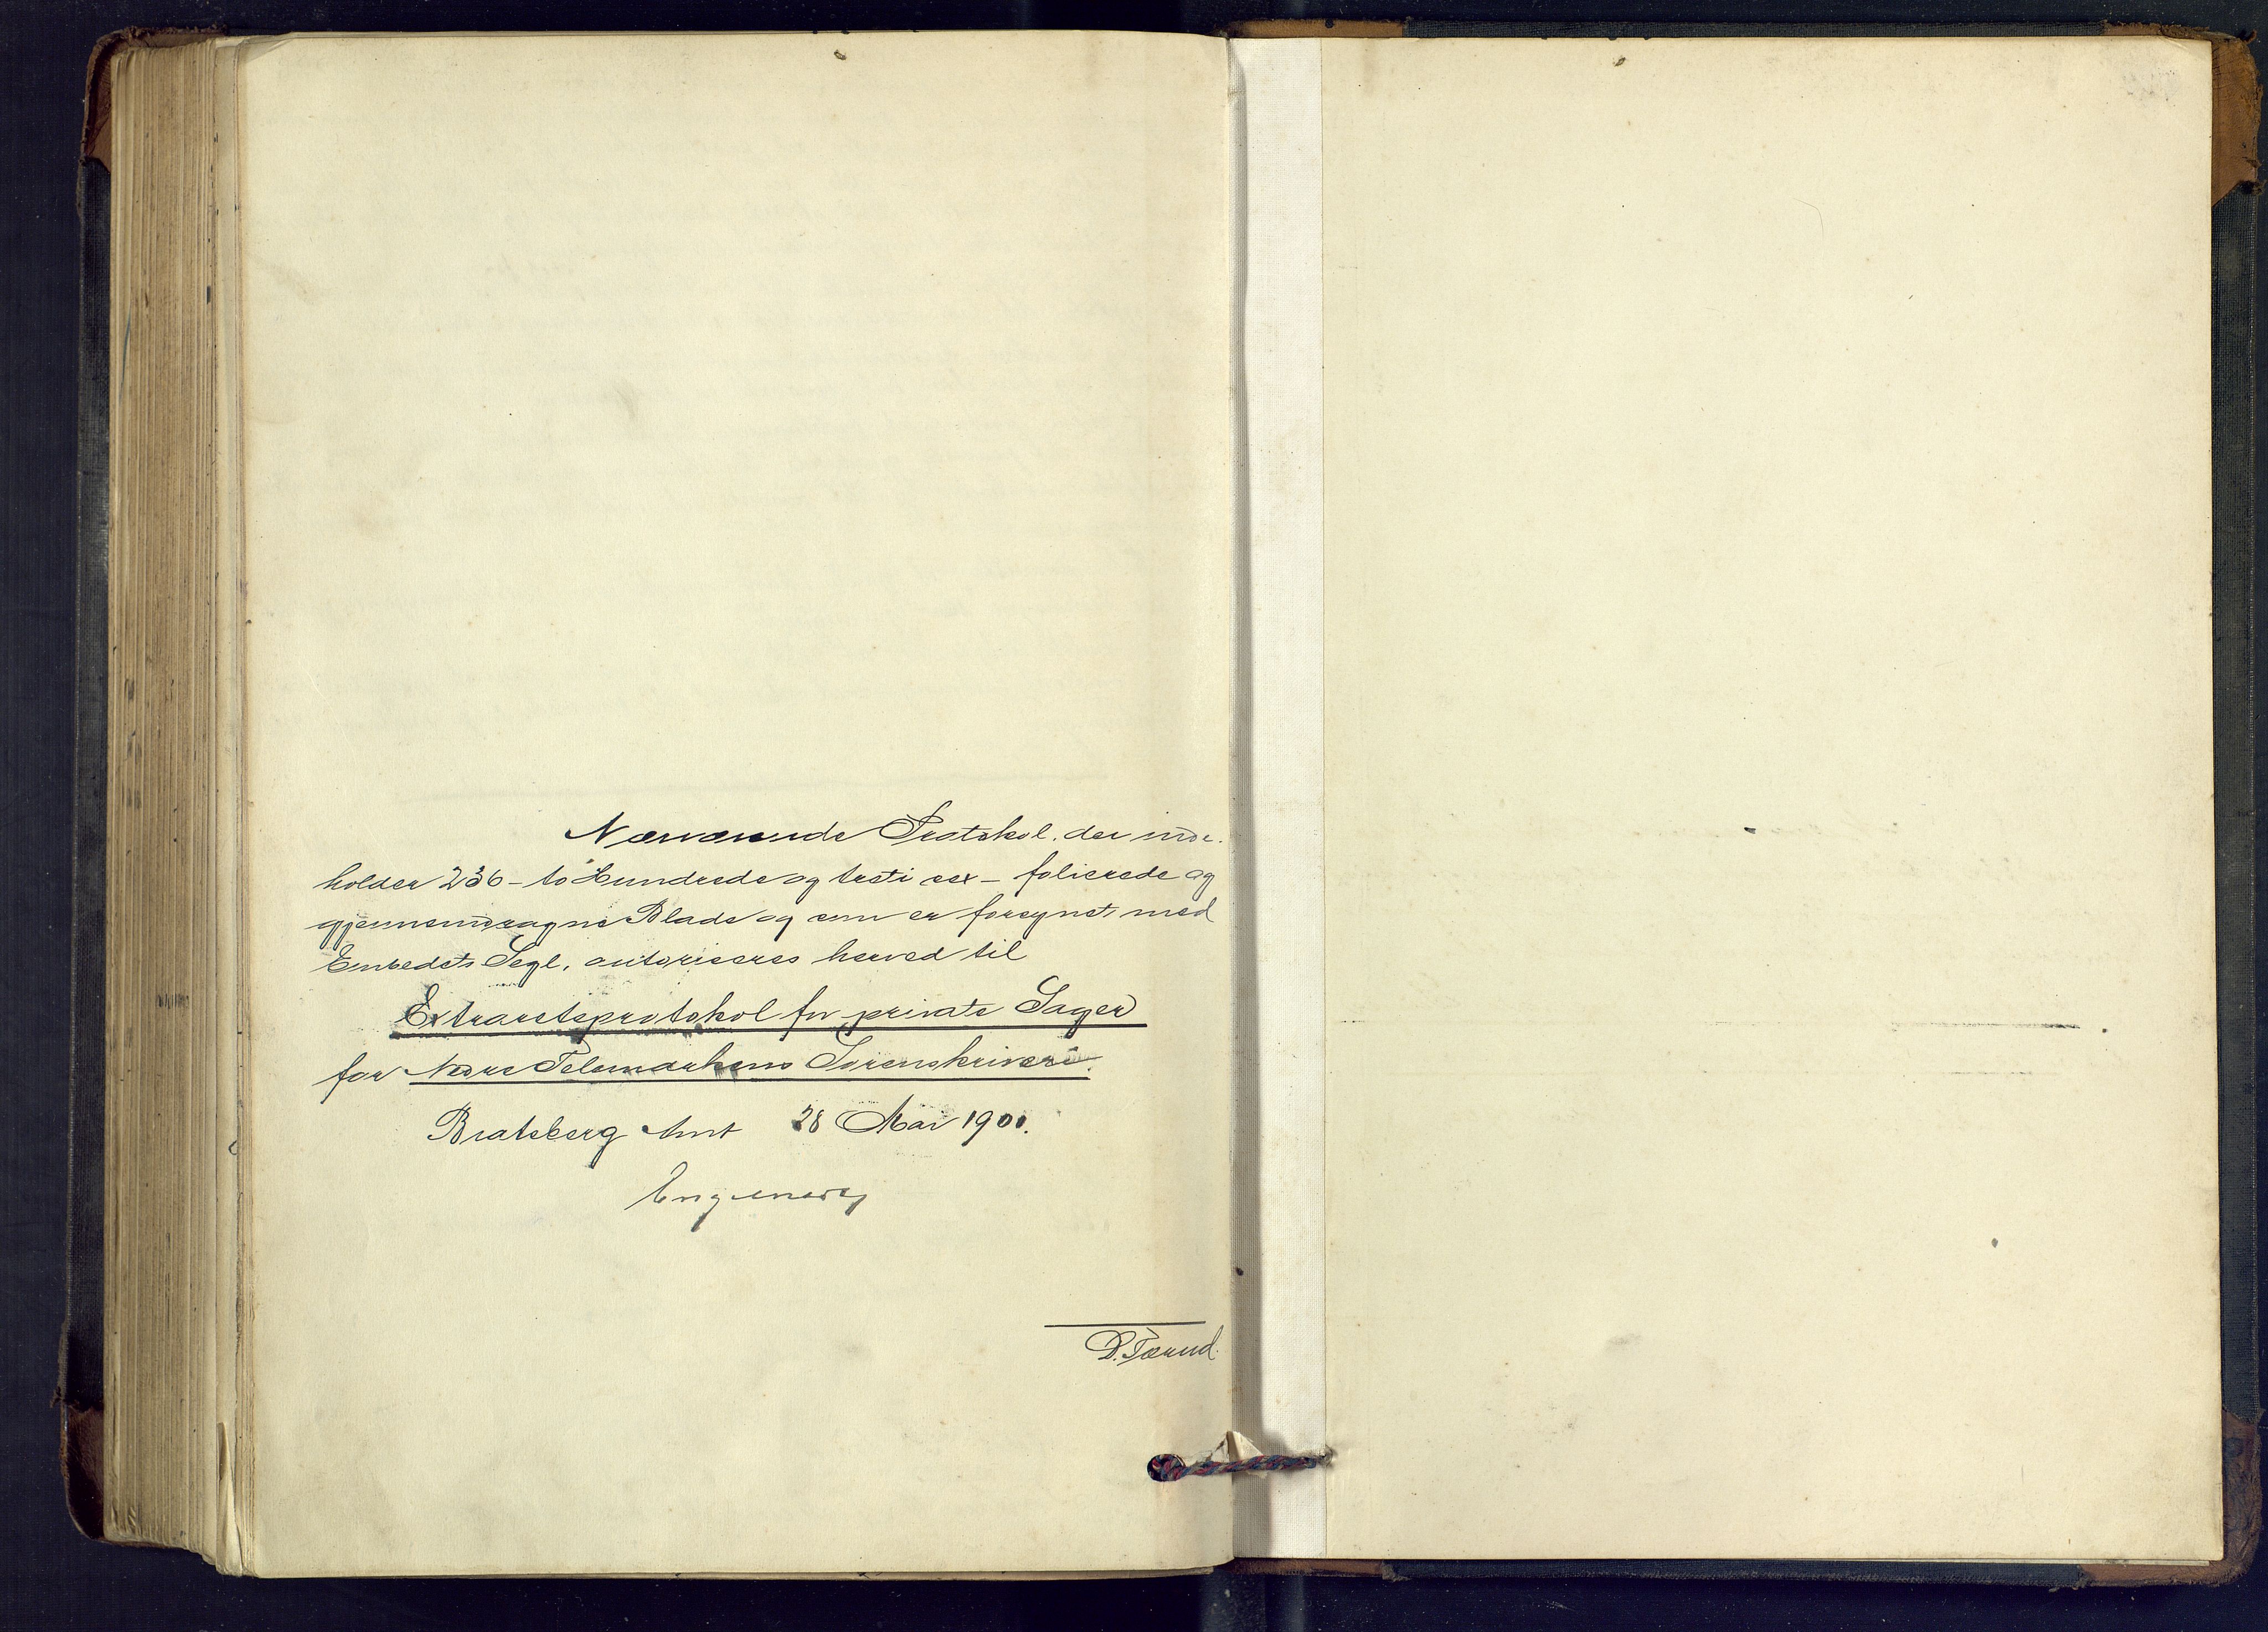 Nærværende Protokol, der inde-
holder 236 - to Hundrede og treti sex - folierede og
gjennemdragne Blade og som er forsynet med
Embedets Segl, autoriseres herved til
Extraretsprotokol for private Sager
for Nedre Telemarkens Sorenskriveri.
Bratsberg Amt 28 Mai 1900.
D. Tærud.